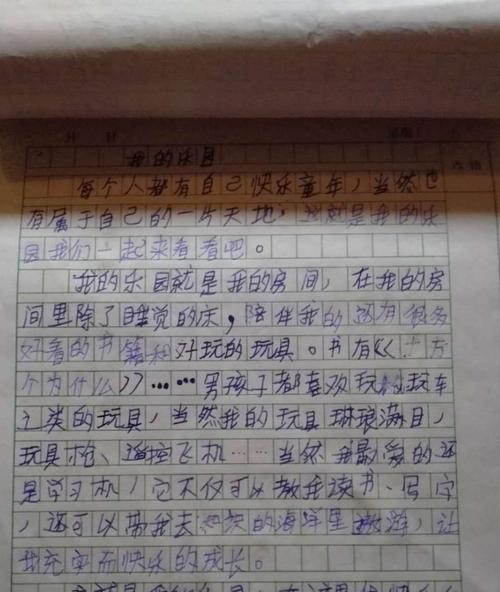 我的乐园
每个人都有自己快乐童年，当然也
有属于自己的一片天地，我就是我的乐
园我们一起来看看吧。
我的乐园就是我的房间，在我的房
间里除了睡觉的床，陪伴我的还有很多
好看的书籍和好玩的玩具。书有《《十万
个为什么》》……男孩子都喜欢玩枪玩车
之类的玩具，当然我的玩具琳琅满目，
玩具枪、遥控飞机……当然我最爱的还
是学习机，它不仅可以教我读书、写字
，还可以带我去知识的海洋里遨游，让
我充实而快乐的成长。